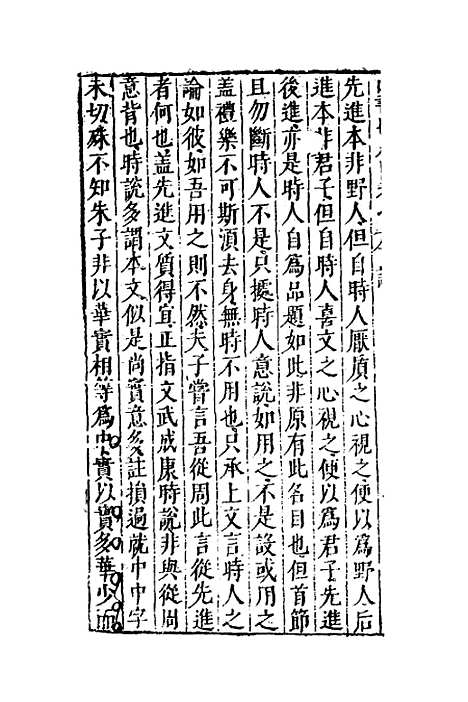 先進本非野人但自時人厭質之心視之便以為野人后
進本非君子但自時人喜文之心視之便以為君子先進
後進亦是時人自為品題如此非原有此名目也但首節
且勿斷時人不是只據時人意說如用之不是設或用之
蓋禮樂不可斯須去身無時不用也只承上文言時人之
論如彼如吾用之則不然夫子嘗言吾從周此言從先進
者何也蓋先進文質得宜正指文武成康時說非與從周
意背也時說多謂本文似是尚實意多註損過就中中字
未切殊不知朱子非以華實相等為中實以實多華少而